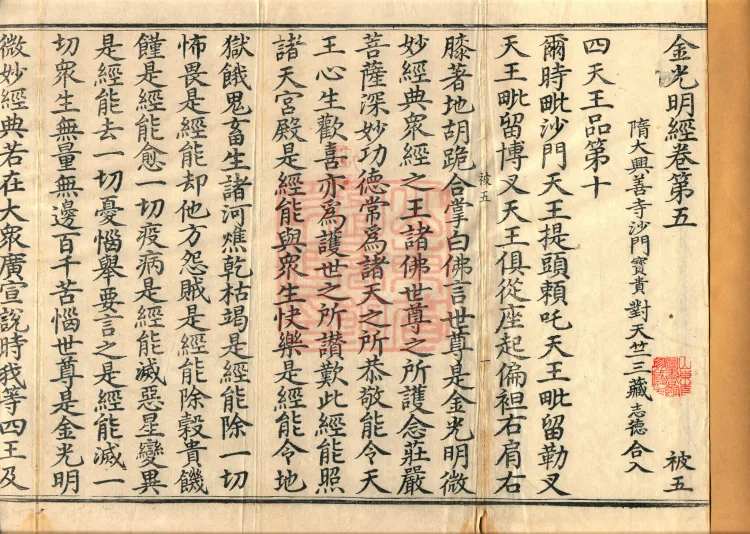 金光明經卷第五
隋大興善寺沙門寶貴對天竺三藏志德合入
被五
四天王品第十
爾時毗沙門天王提頭頼吒天王毗留勒叉
天王毗留博叉天王俱從座起偏袒右肩右
被五
膝著地胡跪合掌白佛言世尊是金光明微
妙經典衆經之王諸佛世尊之所護念莊嚴
菩薩深妙功德常爲諸天之所恭敬能令天
王心生歡喜亦爲護世之所讃歎此經能照
諸天宮殿是經能與衆生快樂是經能令地
獄餓鬼畜生諸河燋乾枯竭是經能除一切
怖畏是經能却他方怨賊是經能除穀貴饑
饉是經能愈一切疫病是經能滅惡星變異
是經能去一切憂惱舉要言之是經能滅一
切衆生無量無邊百千苦惱世尊是金光明
微妙經典若在大衆廣宣說時我等四王及